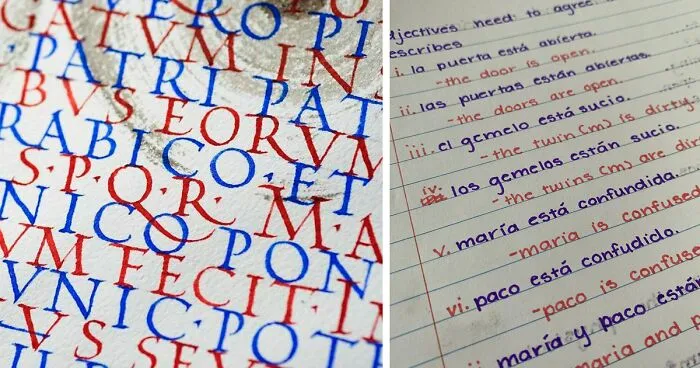 VERO PI
GATVM IN
PATRI PAT
BVS EORVM
RABICO·ET
S·P·Q·R· M·A
NICO PON
VM FECIT·I
VNIC·POT
VS SEV
djectives need to agree
escribes
i. la puerta está abierta.
-the door is open.
ii. las puertas están abiertas.
-the doors are open.
iii. el gemelo está sucio.
-the twin (m) is dirty
iv. los gemelos están sucio.
-the twins (m) are dir
v. maría está confundida.
-maria is confused
vi. paco está confudido.
-paco is confuse
ii. maría y paco están
maria and p